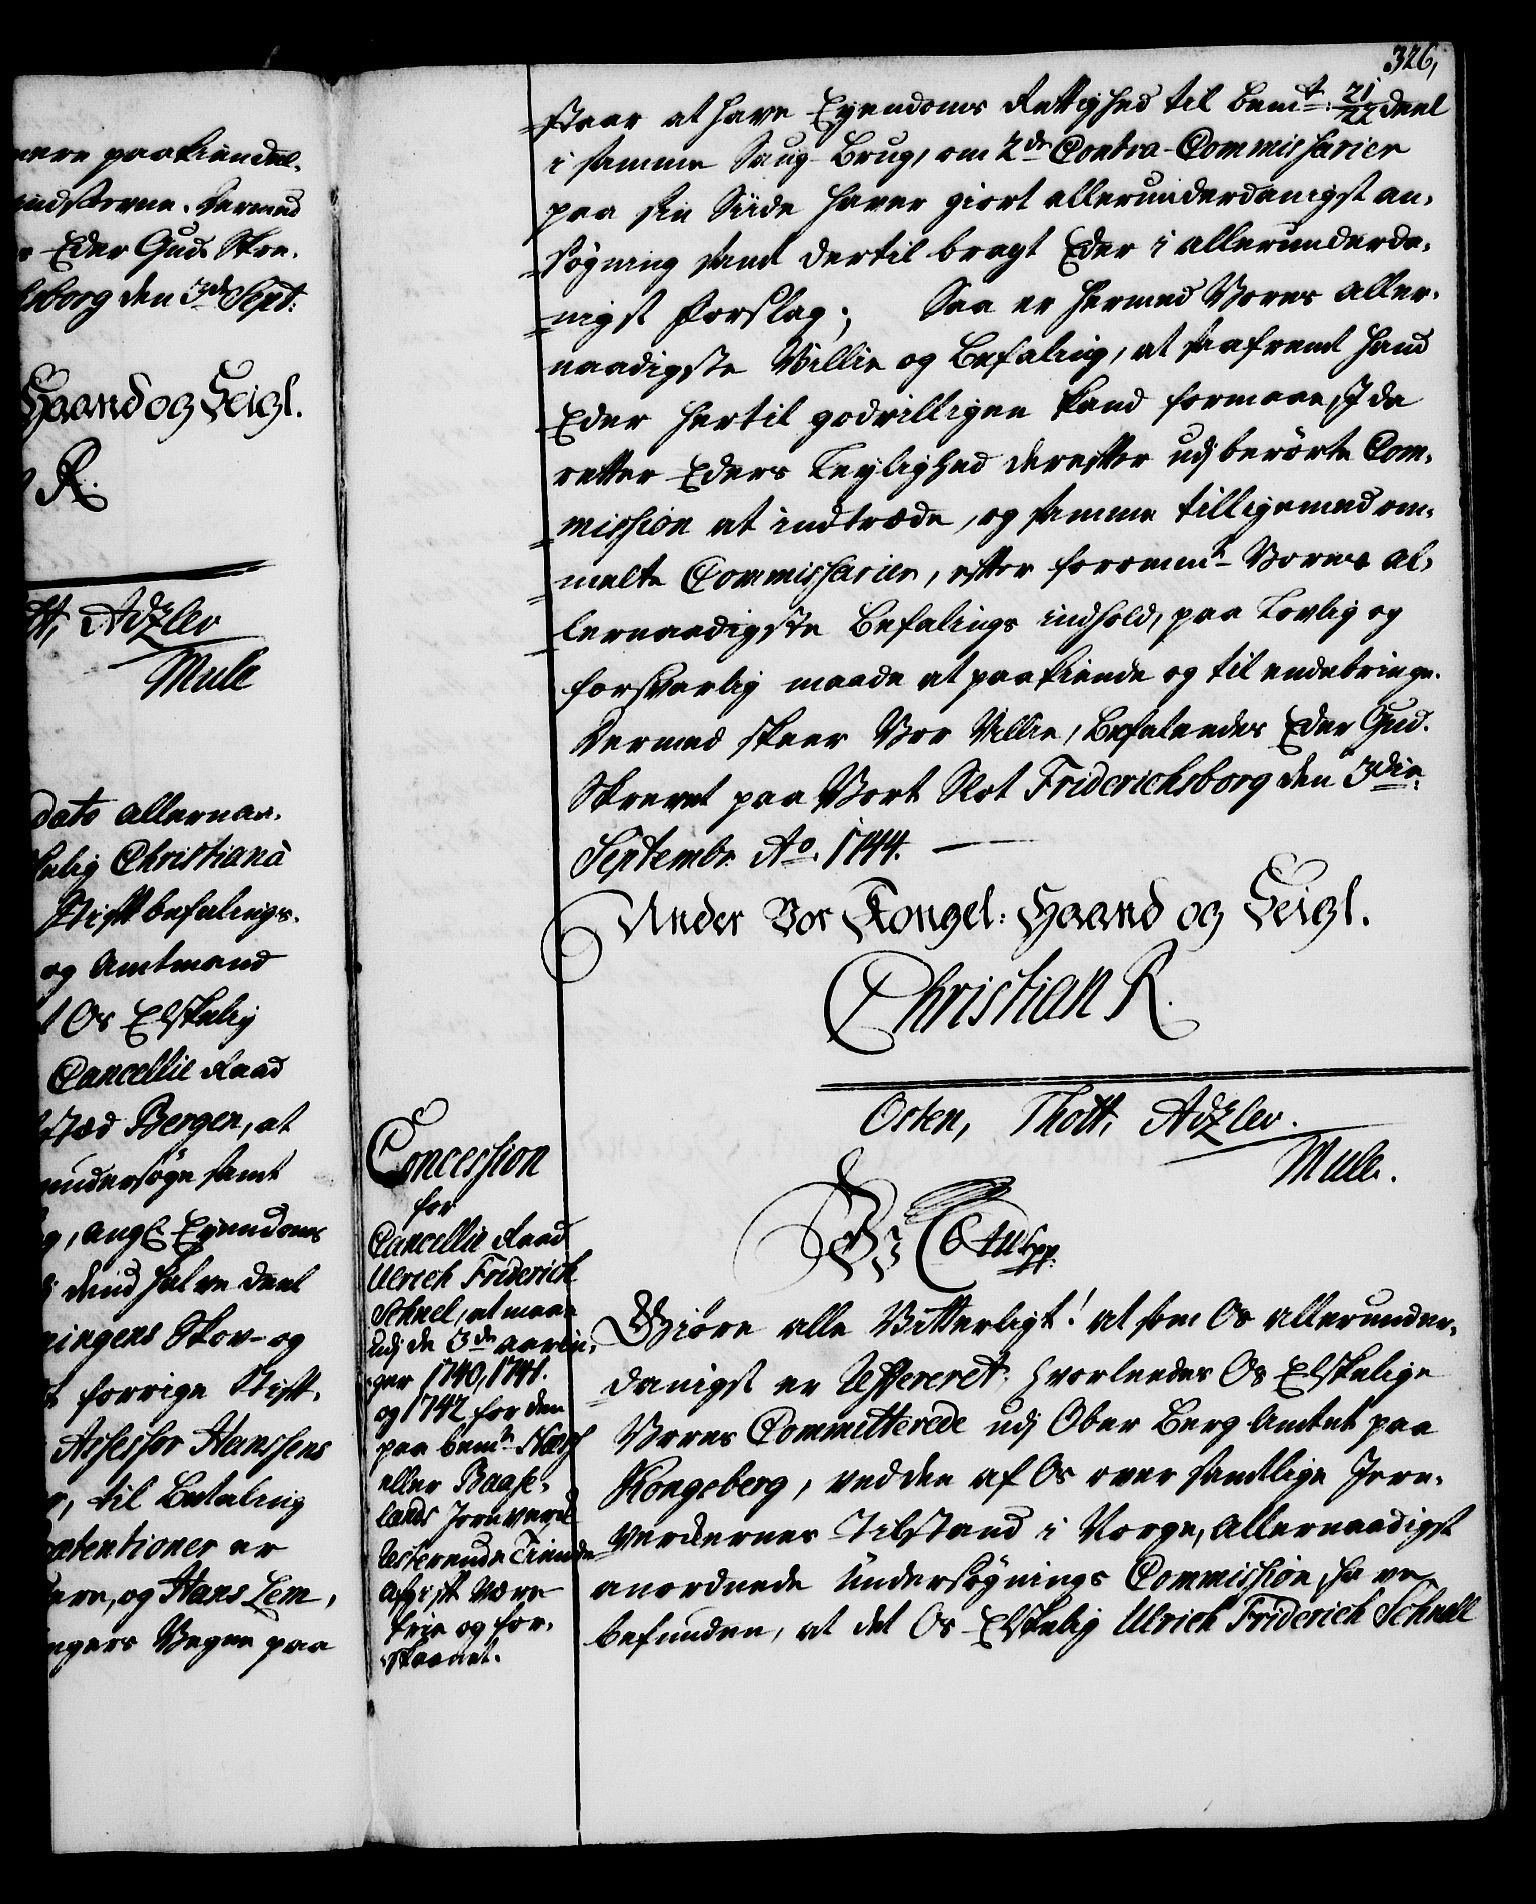 326,
nere paakiendel.
indstevne. Dermed
Eder Gud. Skre.
sborg den 3de Sept:
Haand og Seigl.
R.
tt, Adzlev
Mule
dato allernaa.
elig Christiand
Stiftbefalings.
og Amtmand
Os Elskelig
Cancellie Raad
Stæd Bergen, at
undersøge samt
ang: Eyendoms
dend halve deel
ningens Skov- og
forrige Stift.
Assessor Hanssens
til Betaling
prætentioner er
ere, og Hans Lem,
ngers Vegne paa
staar at have Eyendoms Rettighed til bemte: 21/22 deel
i samme Saug-Brug, om 2de Contra-Commissarier
paa sin Siide haver giort allerunderdanigst an-
søgning samt dertil bragt Eder i allerunderda-
nigst Forslag; Saa er hermed Vores aller-
naadigste Villie og Befaling, at saafremt hand
Eder hertil godvilligen kand formaae, I da
retter Eders Leylighed derefter udj berørte Com-
mission at indtræde, og samme tilligemed om-
melte Commissarier, efter forommte Vores al-
lernaadigste Befalings indhold, paa Lovlig og
forsvarlig maade at paakiende og til endebringe.
Dermed skeer Vor Villie, Befalendes Eder Gud.
Skrevet paa Vort Slot Friderichsborg den 3die
Septembr. Ao. 1744.
Under Vor Kongel: Haand og Seigl.
Christian R.
Osten, Thott, Adzlev.
Mule.
Concession
for
Cancellie Raad
Ulrich Friderich
Schnel, at maae
udj de 3de aarin-
ger 1740, 1741.
og 1742 for den
paa bemte Næs
eller Baase-
lands Jernverk
resterende Tiende
Afgift være
frie og for-
skaanet.
Wi C 6tus pp.
Giøre alle Vitterligt! at som Os allerunder-
danigst er refereret, hvorledes Os Elskelige
Vores Committerede udj Ober Berg Amtet paa
Kongsberg, ved den af Os over samtlige Jern-
verkernes Tilstand i Norge, allernaadigst
anordnede Undersøgnings Commission, have
befunden, at det Os Elskelig Ulrich Friderich Schnell